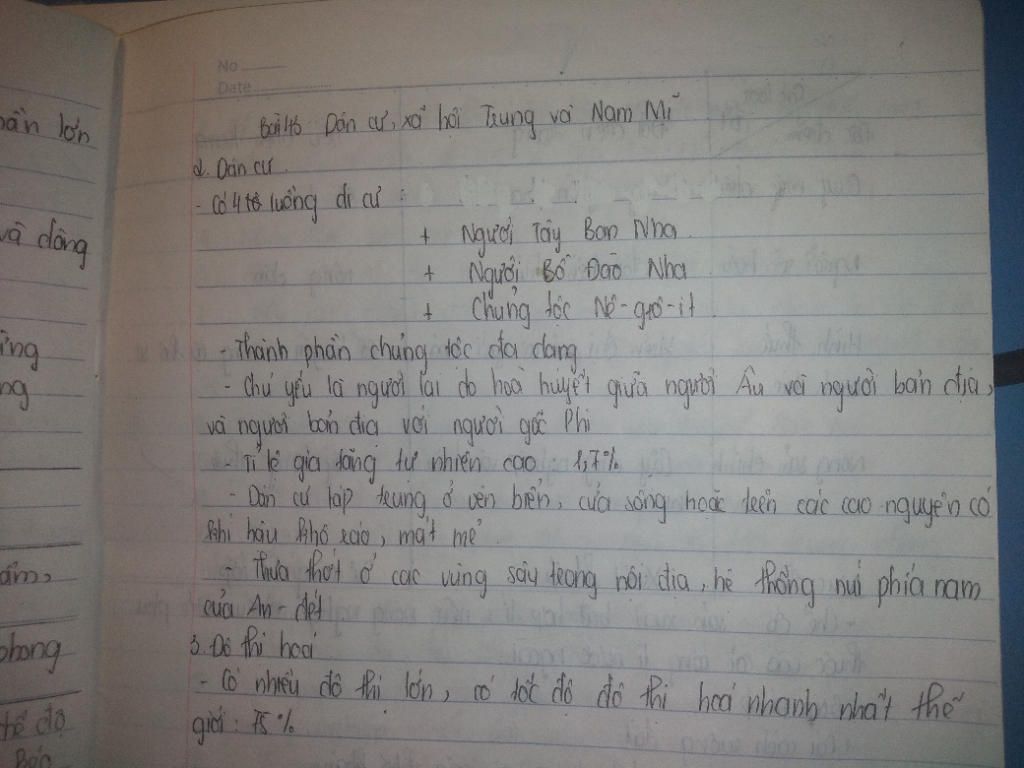 ần lớn
và dông
ững
ng
ẩm,
phong
thể độ
Bắc
No
Date
Bài 43 Dân cư, xã hội Trung và Nam Mĩ
2. Dân cư
- Có 4 luồng di cư :
+ Người Tây Ban Nha
+ Người Bồ Đào Nha
+ Chủng tộc Nê-grô-it
- Thành phần chủng tộc đa dạng
- Chủ yếu là người lai do hoà huyết giữa người Âu và người bản địa,
và người bản địa với người gốc Phi
- Tỉ lệ gia tăng tự nhiên cao 1,7%
- Dân cư tập trung ở ven biển, cửa sông hoặc trên các cao nguyên có
khí hậu khô ráo, mát mẻ
- Thưa thớt ở các vùng sâu trong nội địa, hệ thống núi phía nam
của An-đét
3. Đô thị hoá
- Có nhiều đô thị lớn, có tốc độ đô thị hoá nhanh nhất thế
giới : 75%